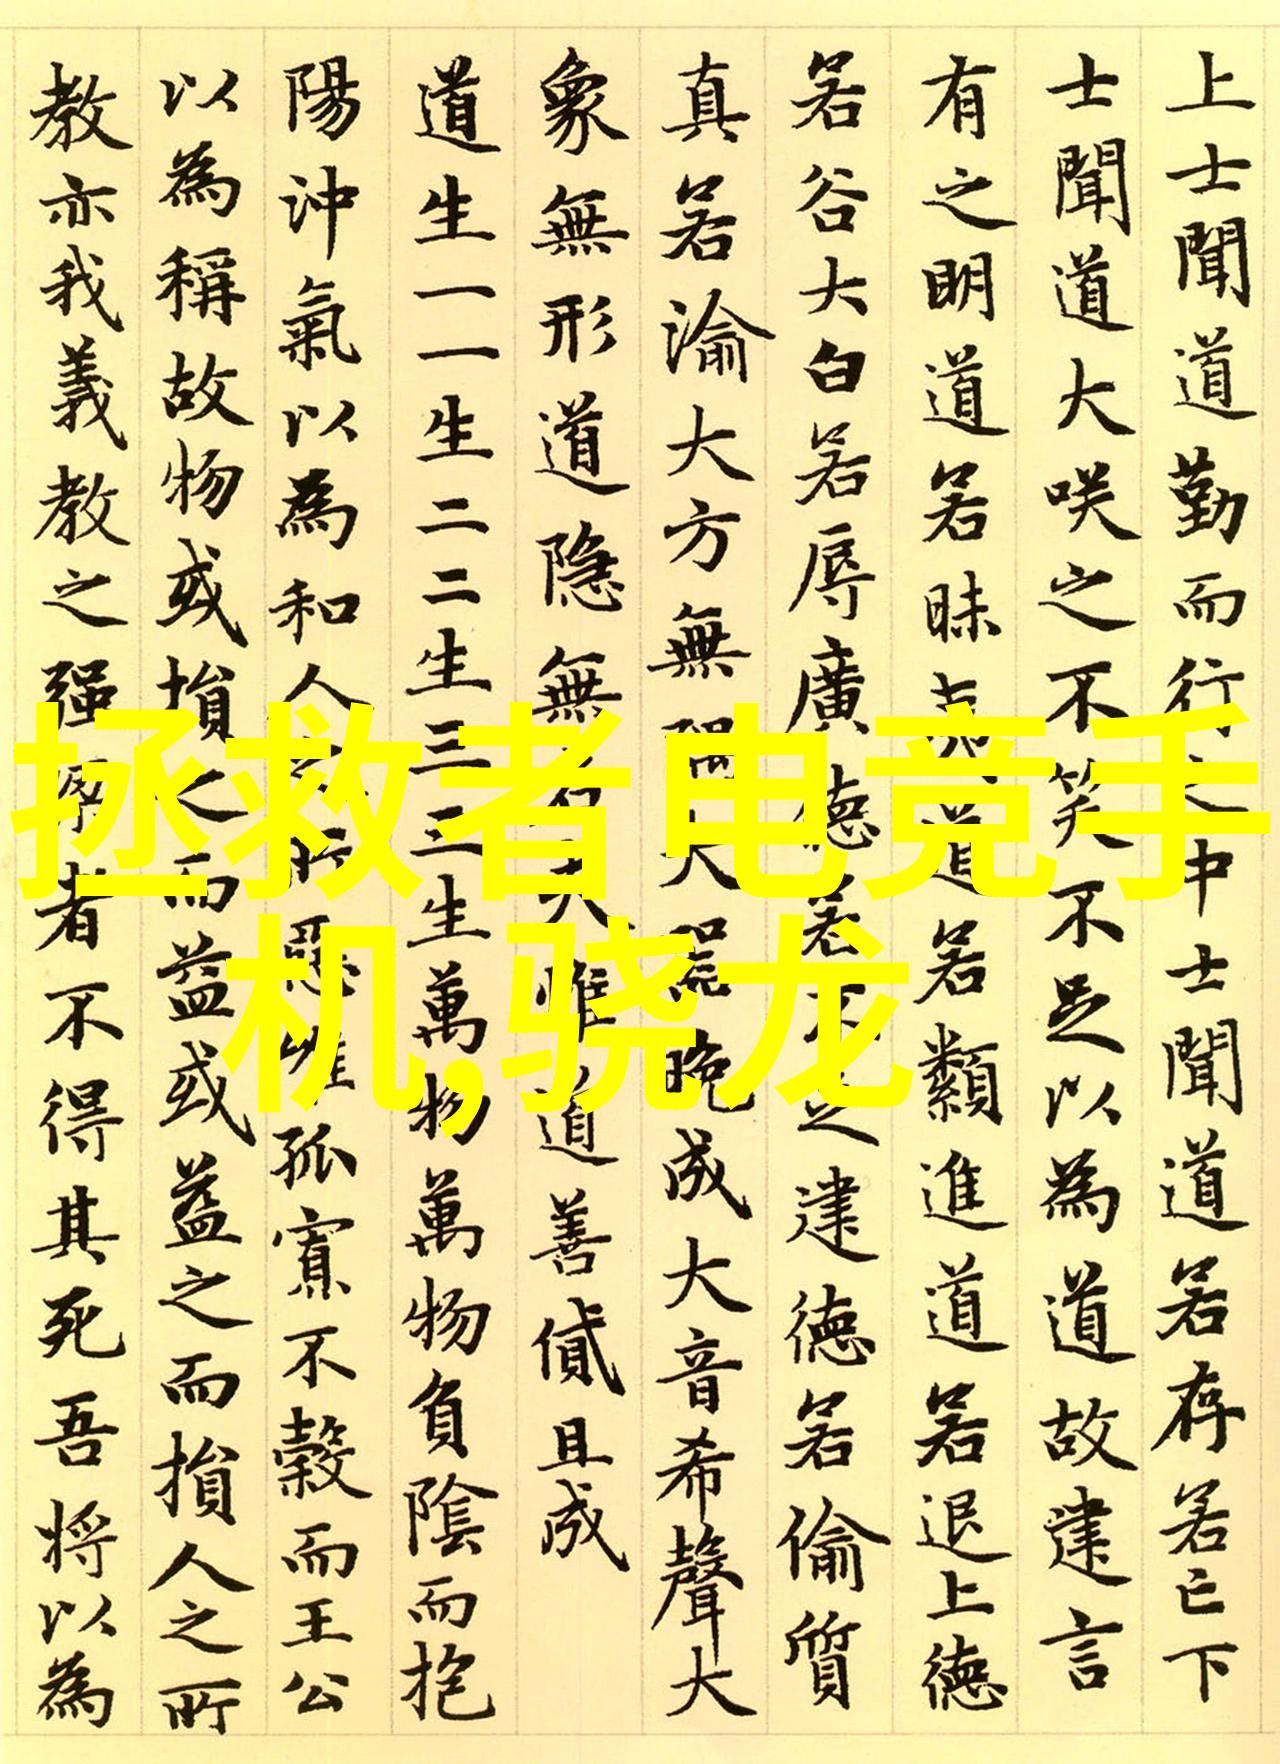 上士聞道勤而行之中士聞道若存若亡下
士聞道大咲之不笑不足以為道故建言
有之明道若昧夷道若纇進道若退上德
若谷大白若辱廣德若不足建德若偷質
真若渝大方無隅大器晚成大音希聲大
象無形道隐無名夫惟道善貸且成
道生一一生二二生三三生萬物萬物負陰而抱
陽沖氣以為和人之所惡惟孤寡不穀而王公
以為稱故物或損之而益或益之而損人之所
教亦我義教之强梁者不得其死吾将以為
拯救者电竞手
机,骁龙